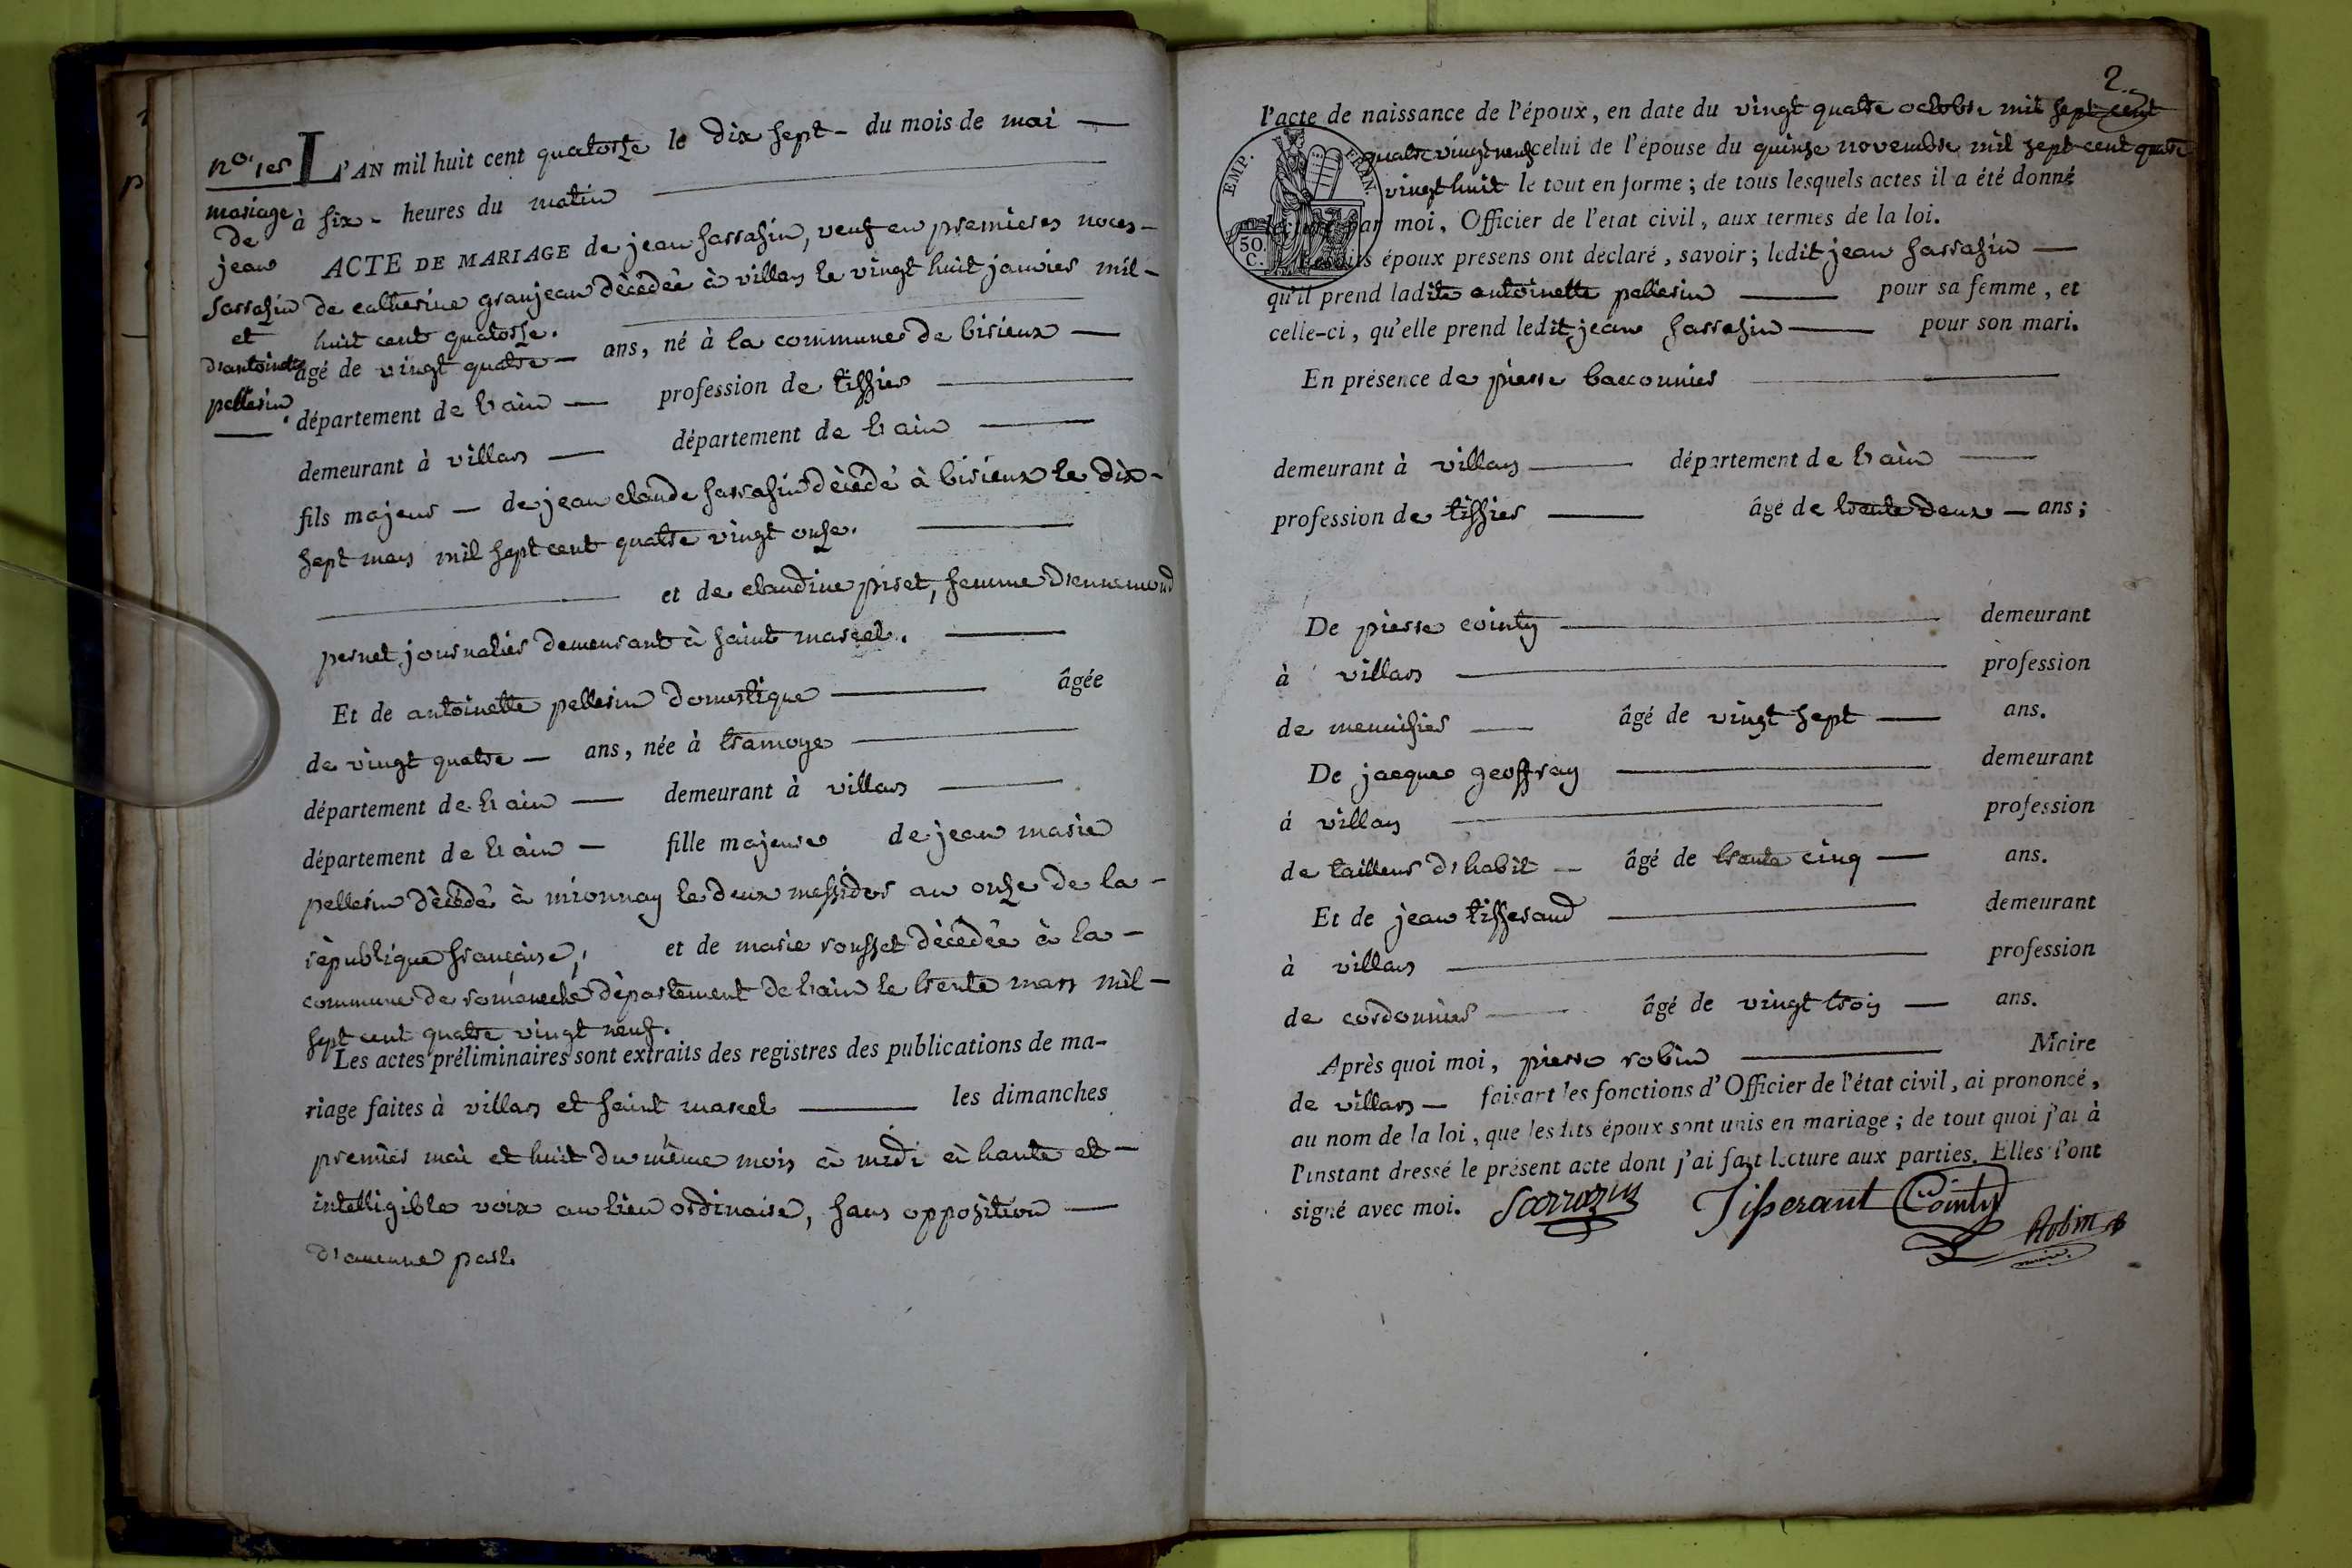 no. 1er
mariage
de
jean
sarrasin
et
d'antoinette
pellerin.
L'AN mil huit cent quatorse le dix sept - du mois de mai —
à six - heures du matin
ACTE DE MARIAGE de jean sarrasin, veuf en premieres noces -
de catherine granjean décédée à villars le vingt huit janvier mil -
huit cent quatorse.
âgé de vingt quatre — ans, né à la commune de birieux —
département de l'ain — profession de tissier —
demeurant à villars — département de l'ain —
fils majeur — de jean claude sarrasin décédé à birieux le dix -
sept mars mil sept cent quatre vingt onse.
et de claudine piret, femme d'ennemond
pernet journalier demeurant à saint marcel.
Et de antoinette pellerin domestique — âgée
de vingt quatre — ans, née à tramoye —
département de l'ain — demeurant à villars —
département de l'ain — fille majeure de jean marie
pellerin décédé à mionnay le deux messidor an onse de la -
république française, et de marie rousset décédée à la -
commune de romaneche département de l'ain le trente mars mil -
sept cent quatre vingt neuf.
Les actes préliminaires sont extraits des registres des publications de ma-
riage faites à villars et saint marcel — les dimanches
premier mai et huit du même mois à midi à haute et -
intelligible voix au lieu ordinaire, sans opposition —
d'aucune part.
2.
l'acte de naissance de l'époux, en date du vingt quatre octobre mil sept cent
quatre vingt neuf celui de l'épouse du quinse novembre mil sept cent quatre
vingt huit le tout en forme ; de tous lesquels actes il a été donné
lecture par moi, Officier de l'état civil, aux termes de la loi.
Lesdits époux présens ont déclaré, savoir ; ledit jean sarrasin —
qu'il prend ladite antoinette pellerin — pour sa femme, et
celle-ci, qu'elle prend ledit jean sarrasin — pour son mari.
EMP. FRAN.
50.
C.
En présence de pierre bacconnier
demeurant à villars — département de l'ain —
profession de tissier — âgé de trente deux — ans ;
De pierre cointy — demeurant
à villars — profession
de menuisier — âgé de vingt sept — ans.
De jacques geoffray — demeurant
à villars — profession
de tailleur d'habit — âgé de trente cinq — ans.
Et de jean tisserand — demeurant
à villars — profession
de cordonnier — âgé de vingt trois — ans.
Après quoi moi, pierre robin — Maire
de villars — faisant les fonctions d'Officier de l'état civil, ai prononcé,
au nom de la loi, que lesdits époux sont unis en mariage ; de tout quoi j'ai à
l'instant dressé le présent acte dont j'ai fait lecture aux parties. Elles l'ont
signé avec moi. Sarrazin Tisserant Cointy Robin
maire.